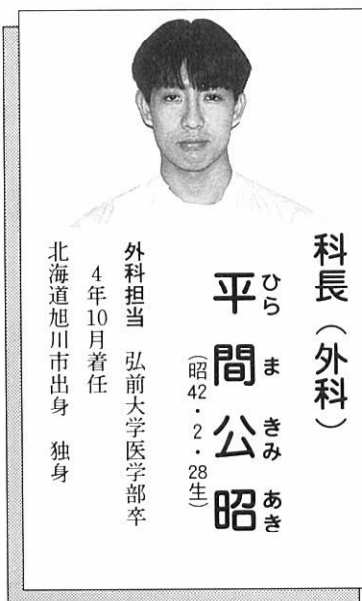 科長（外科）
平間公昭
ひらまきみあき
（昭42・2・28生）
外科担当　弘前大学医学部卒
4年10月着任
北海道旭川市出身　独身